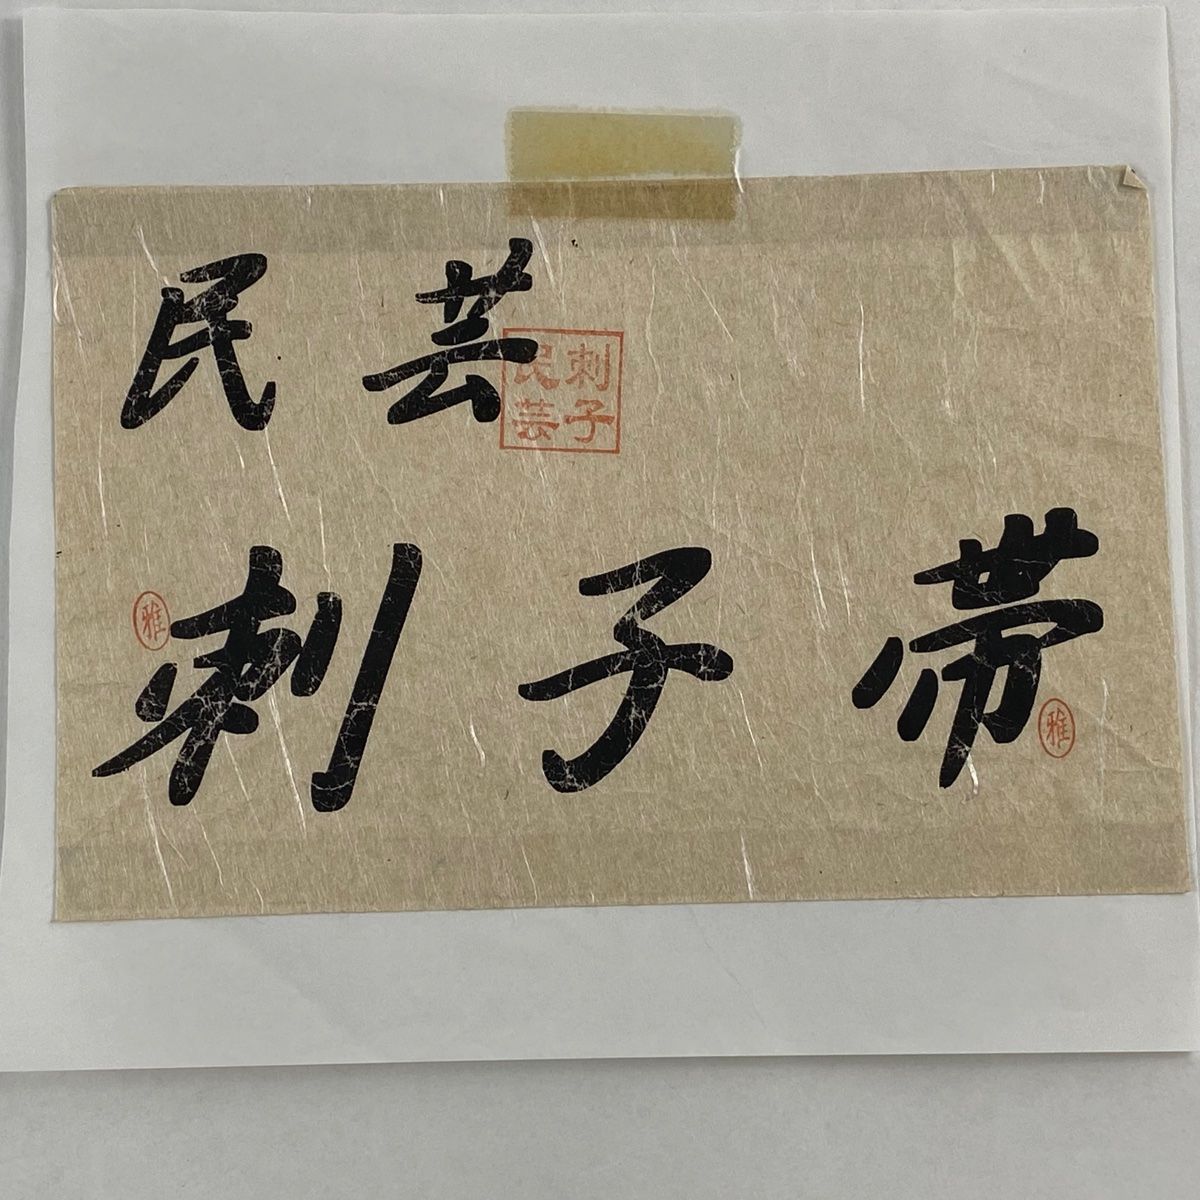 民芸
刺子
民芸
刺子帯
雅
雅